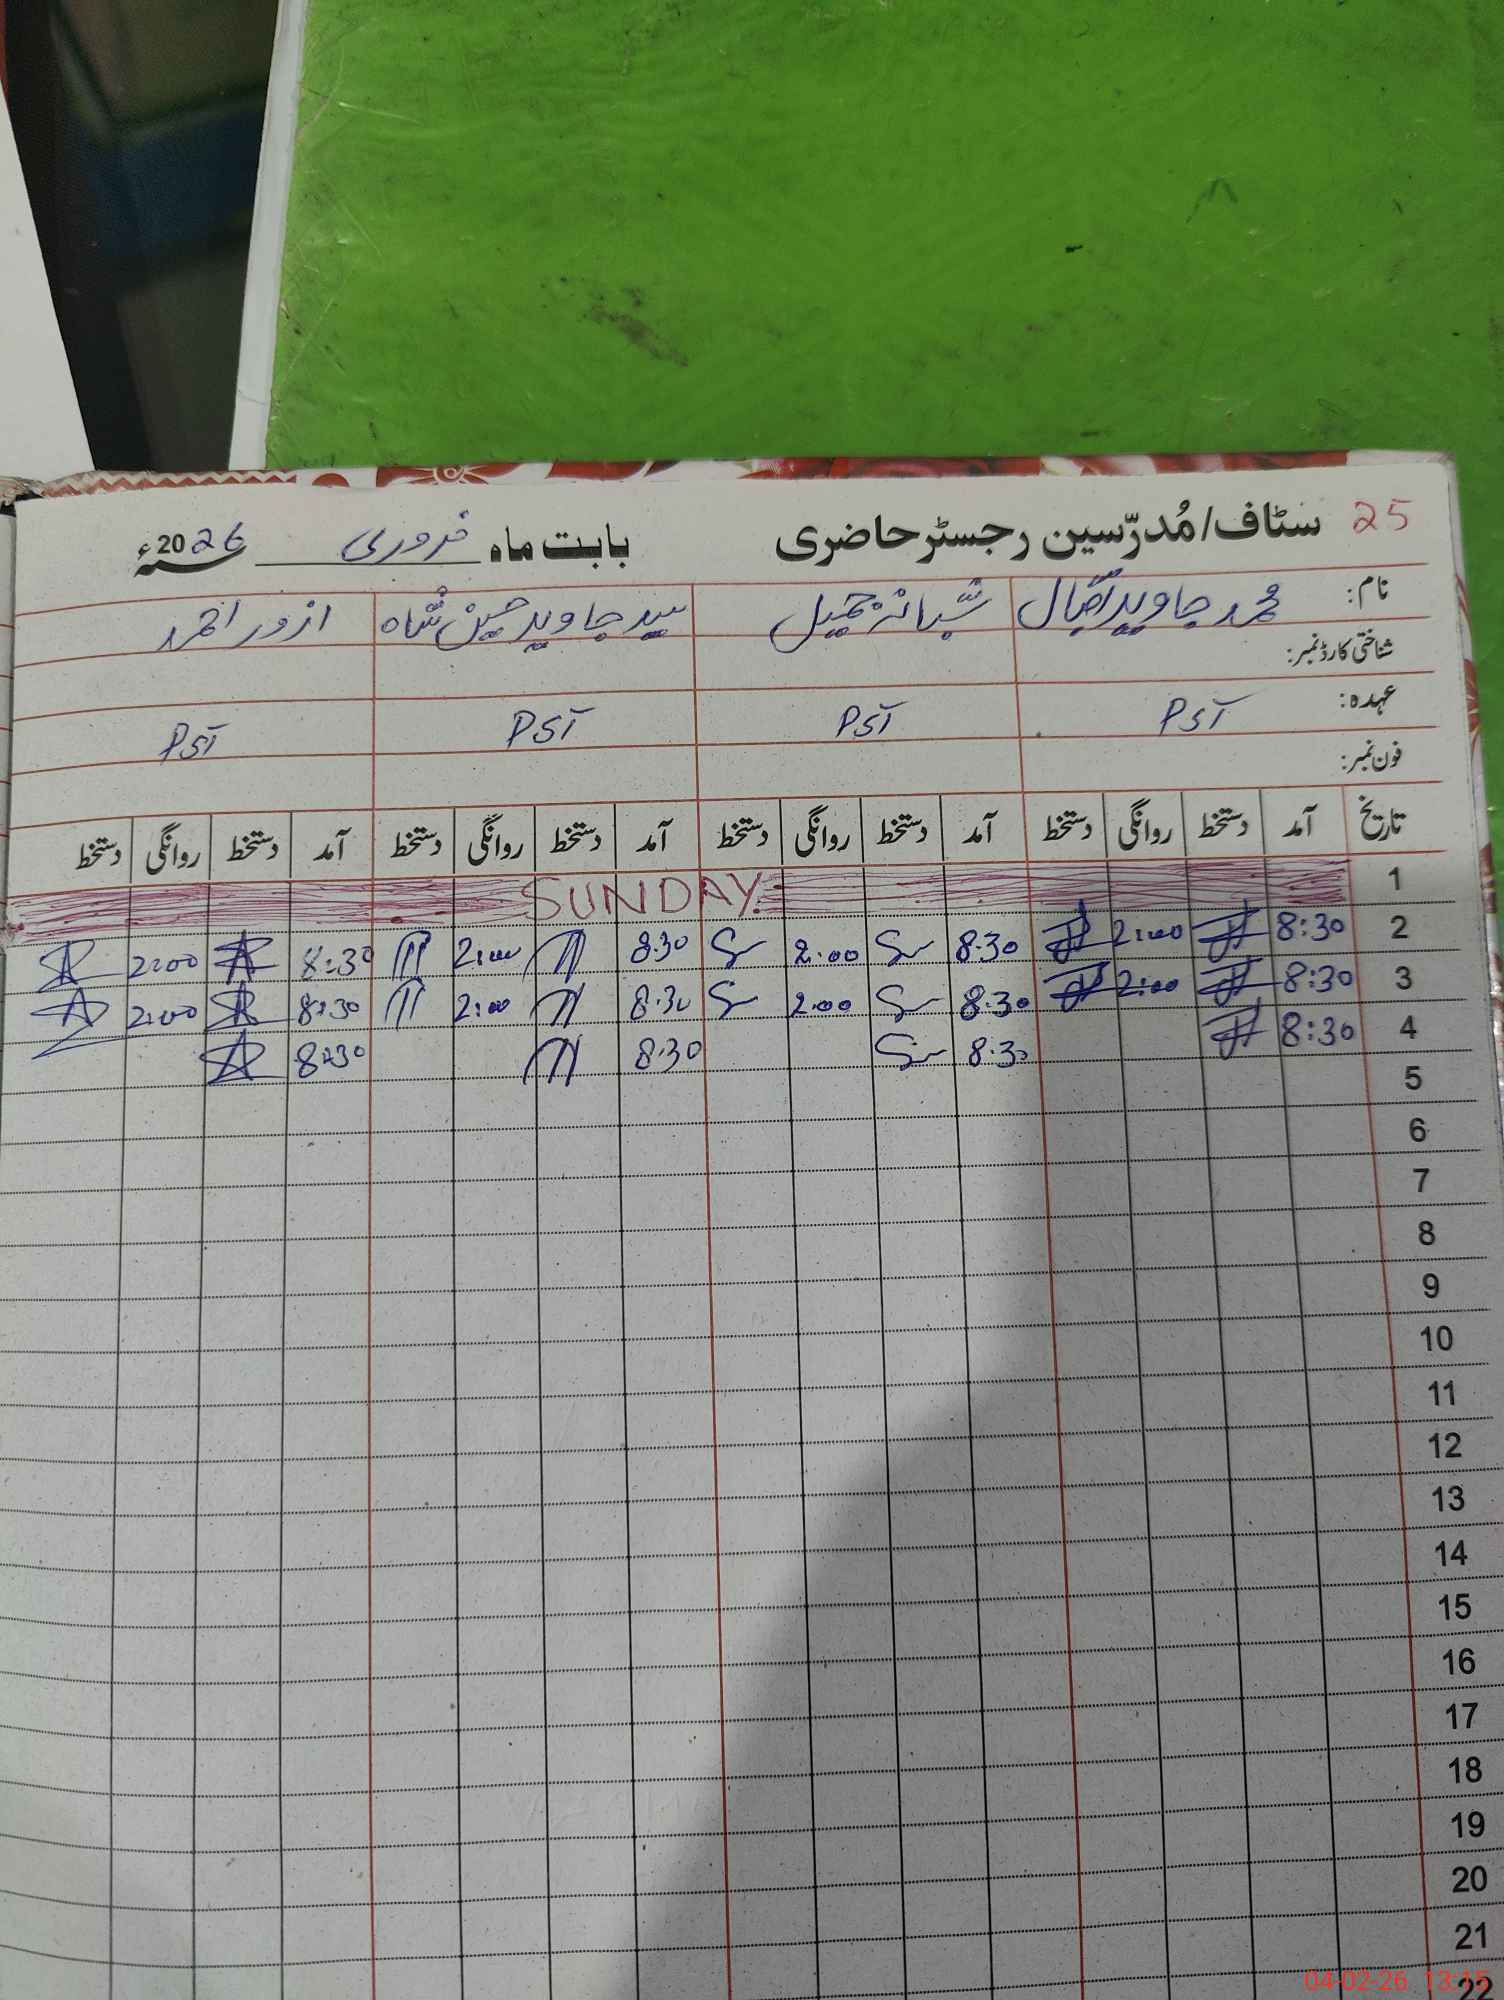 25 سٹاف/مُدرّسین رجسٹر حاضری بابت ماہ فروری سنہ 2026ء
نام: محمد جاوید اقبال شبانہ جمیل سید جاوید حسین شاہ ازور احمد
شناختی کارڈ نمبر:
عہدہ: PST PST PST PST
فون نمبر:
تاریخ آمد دستخط روانگی دستخط آمد دستخط روانگی دستخط آمد دستخط روانگی دستخط آمد دستخط روانگی دستخط
1 SUNDAY
2 8:30 2:00 8:30 2:00 8:30 2:00 8:30 2:00
3 8:30 2:00 8:30 2:00 8:30 2:00 8:30 2:00
4 8:30 8:30 8:30 8:30
5
6
7
8
9
10
11
12
13
14
15
16
17
18
19
20
21
22
04-02-26 13:15